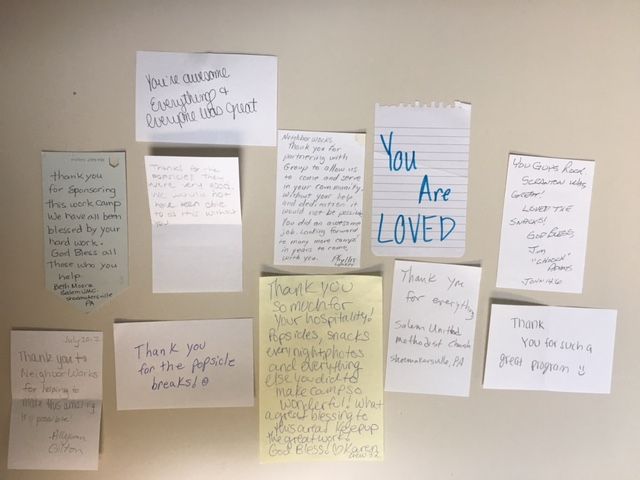 You're awesome
Everything &
everyone was great
Neighborworks,
Thank you for
partnering with
Group to allow us
to come and serve
in your community.
Without your help
and dedication it
would not be possible.
You did an awesome
job. Looking forward
to many more camps
in years to come
with you.
Phyllis
You
Are
LOVED
thank you
for sponsoring
this work camp
We have all been
blessed by your
hard work.
God Bless all
those who you
help
Beth Moera
Salem UMC
Shoemakersville
PA
Thanks for the
popsicles they
were very good.
We would not
have been able
to do this without
you
YOU GUYS ROCK.
SCRANTON WAS
GREAT!
LOVED THE
SNACKS!
GOD BLESS
JIM
"CHUCK"
ADAMS
JOHN 14:6
Thank you
for everything
Salem United
Methodist Church
Shoemakersville, PA
Thank you
so much for
your hospitality!
Popsicles, snacks
every night photos
and everything
else you did to
make camp so
wonderful! What
a great blessing to
this area! Keep up
the great work!
God Bless! Karen
Crew
Thank you
for the popsicle
breaks!
Thank
you for such a
great program
Thank you to
NeighborWorks
for helping to
make this amazing
trip possible!
-Allyson
Gilton